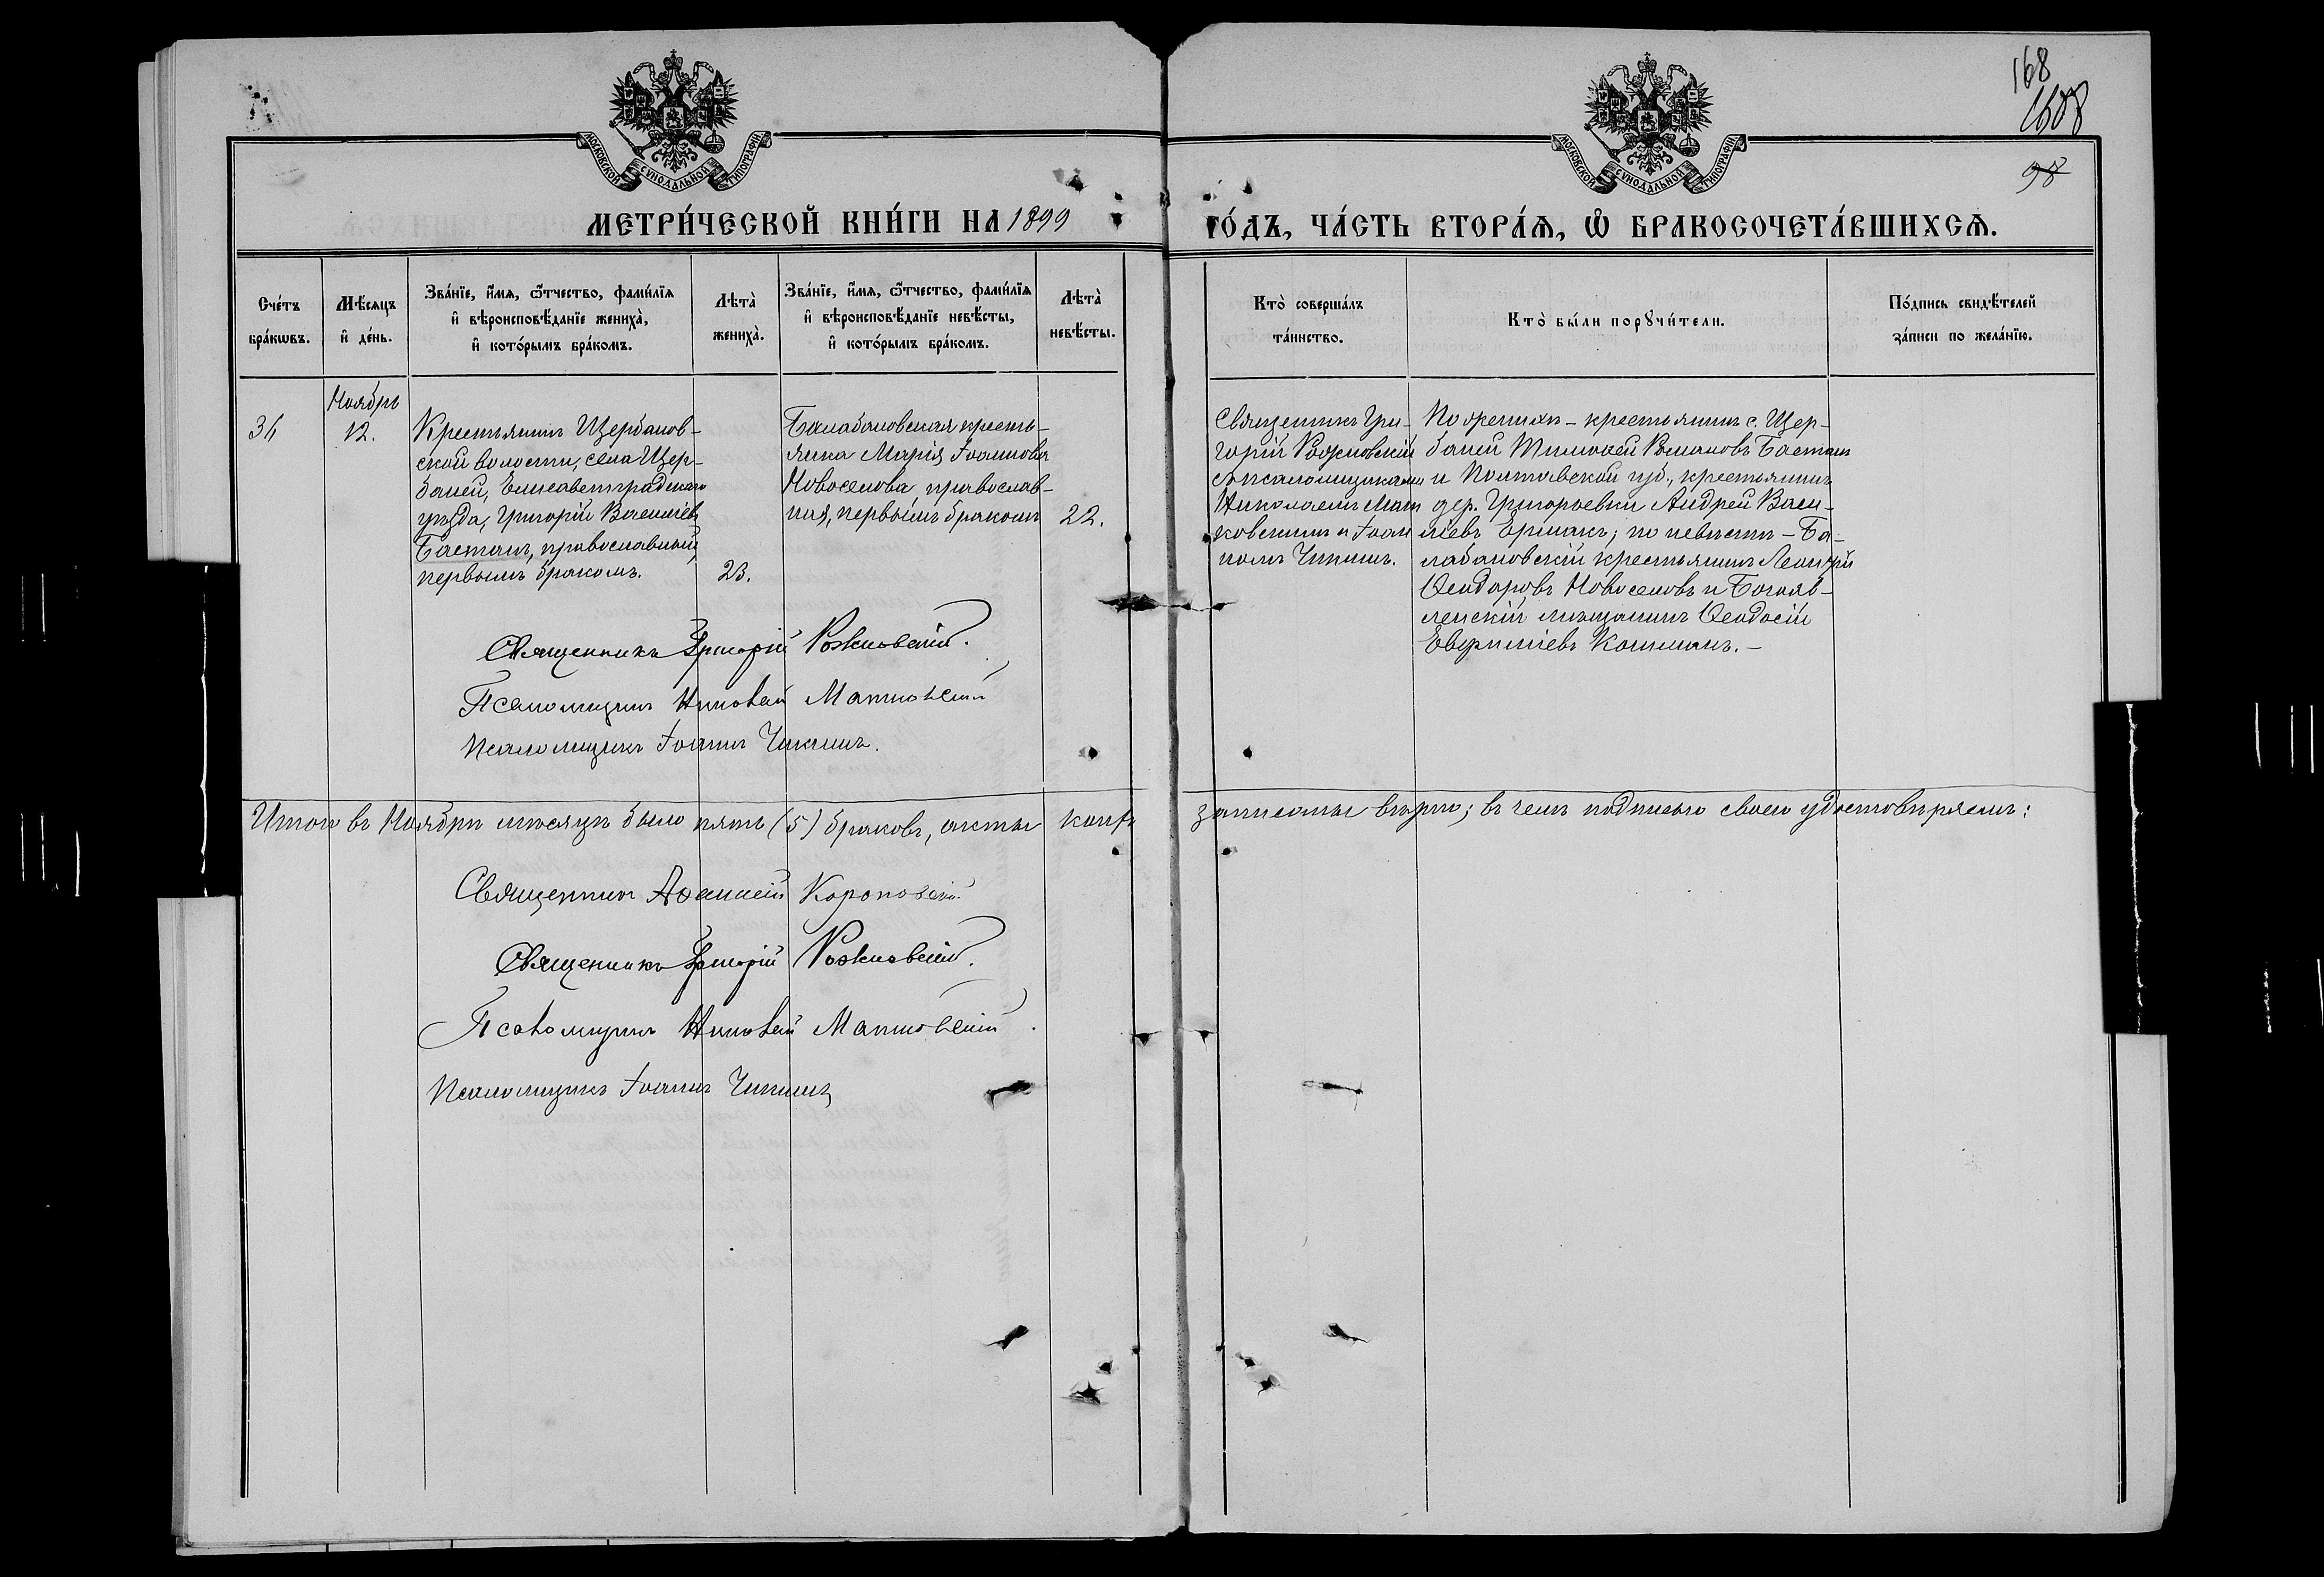 168
1608
98
МОСКОВСКОЙ СѴНОДАЛЬНОЙ ТИПОГРАФІИ
МОСКОВСКОЙ СѴНОДАЛЬНОЙ ТИПОГРАФІИ
МЕТРИ́ЧЕСКОЙ КНИ́ГИ НА 1899 ГО́ДЪ, ЧА́СТЬ ВТОРА́Ѧ, Ѽ БРАКОСОЧЕТА́ВШИХСѦ.
Сче́тъ
бра́кѡвъ.
Мѣ́сяцъ
и҆ де́нь.
Зва́нїе, и҆́мя, ѻ҆́тчество, фами́лїя
и҆ вѣроисповѣ́данїе жениха̀,
и҆ кото́рымъ бра́комъ.
Лѣта̀
жениха̀.
Зва́нїе, и҆́мя, ѻ҆́тчество, фами́лїя
и҆ вѣроисповѣ́данїе невѣ́сты,
и҆ кото́рымъ бра́комъ.
Лѣта̀
невѣ́сты.
Кто̀ соверша́лъ
та́инство.
Кто̀ бы́ли порꙋчи́тели.
По́дпись свидѣ́телей
за́писи по жела́нїю.
36
Ноябрь
12.
Крестьянинъ Щербанов-
ской волости, села Щер-
баней, Елисаветградскаго
уѣзда, Григорій Васильевъ
Бастанъ, православный,
первымъ бракомъ.
23.
Балабановская кресть-
янка Марія Іоаннова
Новоселова, православ-
ная, первымъ бракомъ
22.
Священникъ Гри-
горій Рожновскій
съ псаломщиками
Николаемъ Мат
ковскимъ и Іоан
номъ Чикишъ.
По женихѣ – крестьянинъ с. Щер-
баней Тимофей Романовъ Бастанъ
и Полтавской губ., крестьянинъ
дер. Григорьевки Андрей Васи-
льевъ Ермакъ; по невѣстѣ – Ба-
лабановскій крестьянинъ Леонтій
Ѳеодоровъ Новоселовъ и Богояв-
ленскій мѣщанинъ Ѳеодосій
Евфиміевъ Кошманъ. –
Священникъ Григорій Рожновскій.
Псаломщикъ Николай Матковскій
Псаломщикъ Іоаннъ Чикишъ.
Итого въ Ноябрѣ мѣсяцѣ было пять (5) браковъ, акты коихъ записаны вѣрно; въ чемъ подписью своею удостовѣряемъ:
Священникъ Аѳанасій
Священникъ Григорій Рожновскій.
Псаломщикъ Николай Матковскій.
Псаломщикъ Іоаннъ Чикишъ